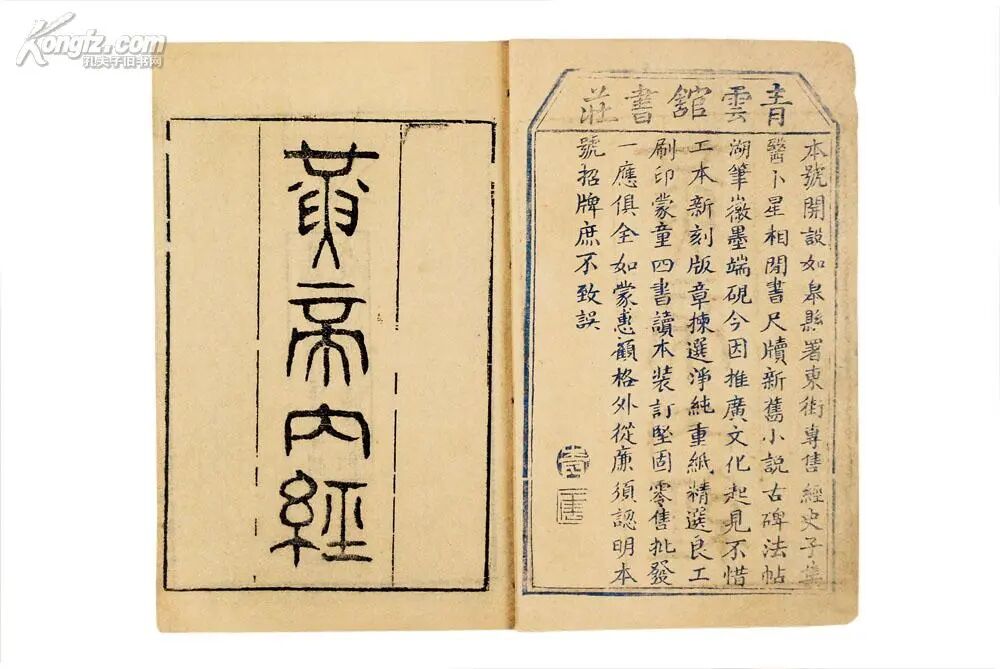 Kongfz.com
孔夫子旧书网
青雲館書莊
本號開設如皋縣署東街專售經史子集
醫卜星相閒書尺牘新舊小説古碑法帖
湖筆徽墨端硯今因推廣文化起見不惜
工本新刻版章揀選淨純重紙精選良工
刷印蒙童四書讀本裝訂堅固零售批發
一應俱全如蒙惠顧格外從廉須認明本
號招牌庶不致誤
黃帝內經